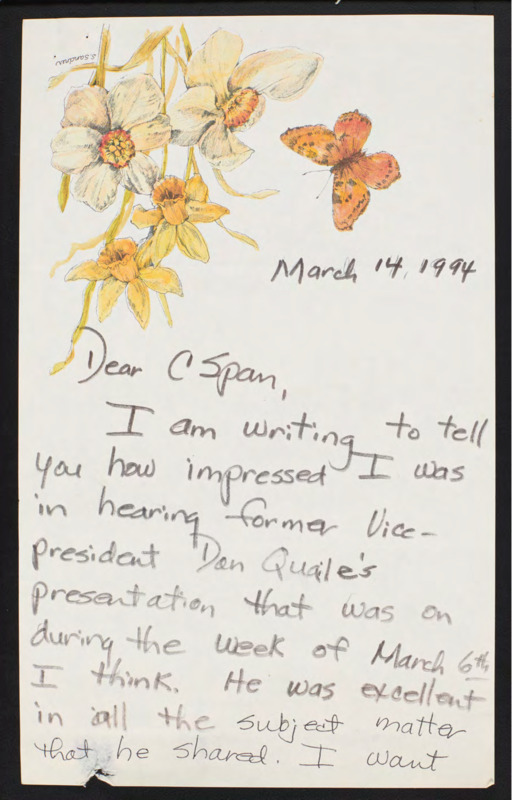 March 14, 1994
Dear C Span,
I am writing to tell
you how impressed I was
in hearing former Vice-
president Dan Quale's
presentation that was on
during the week of March 6th
I think. He was excellent
in all the subject matter
that he shared. I want